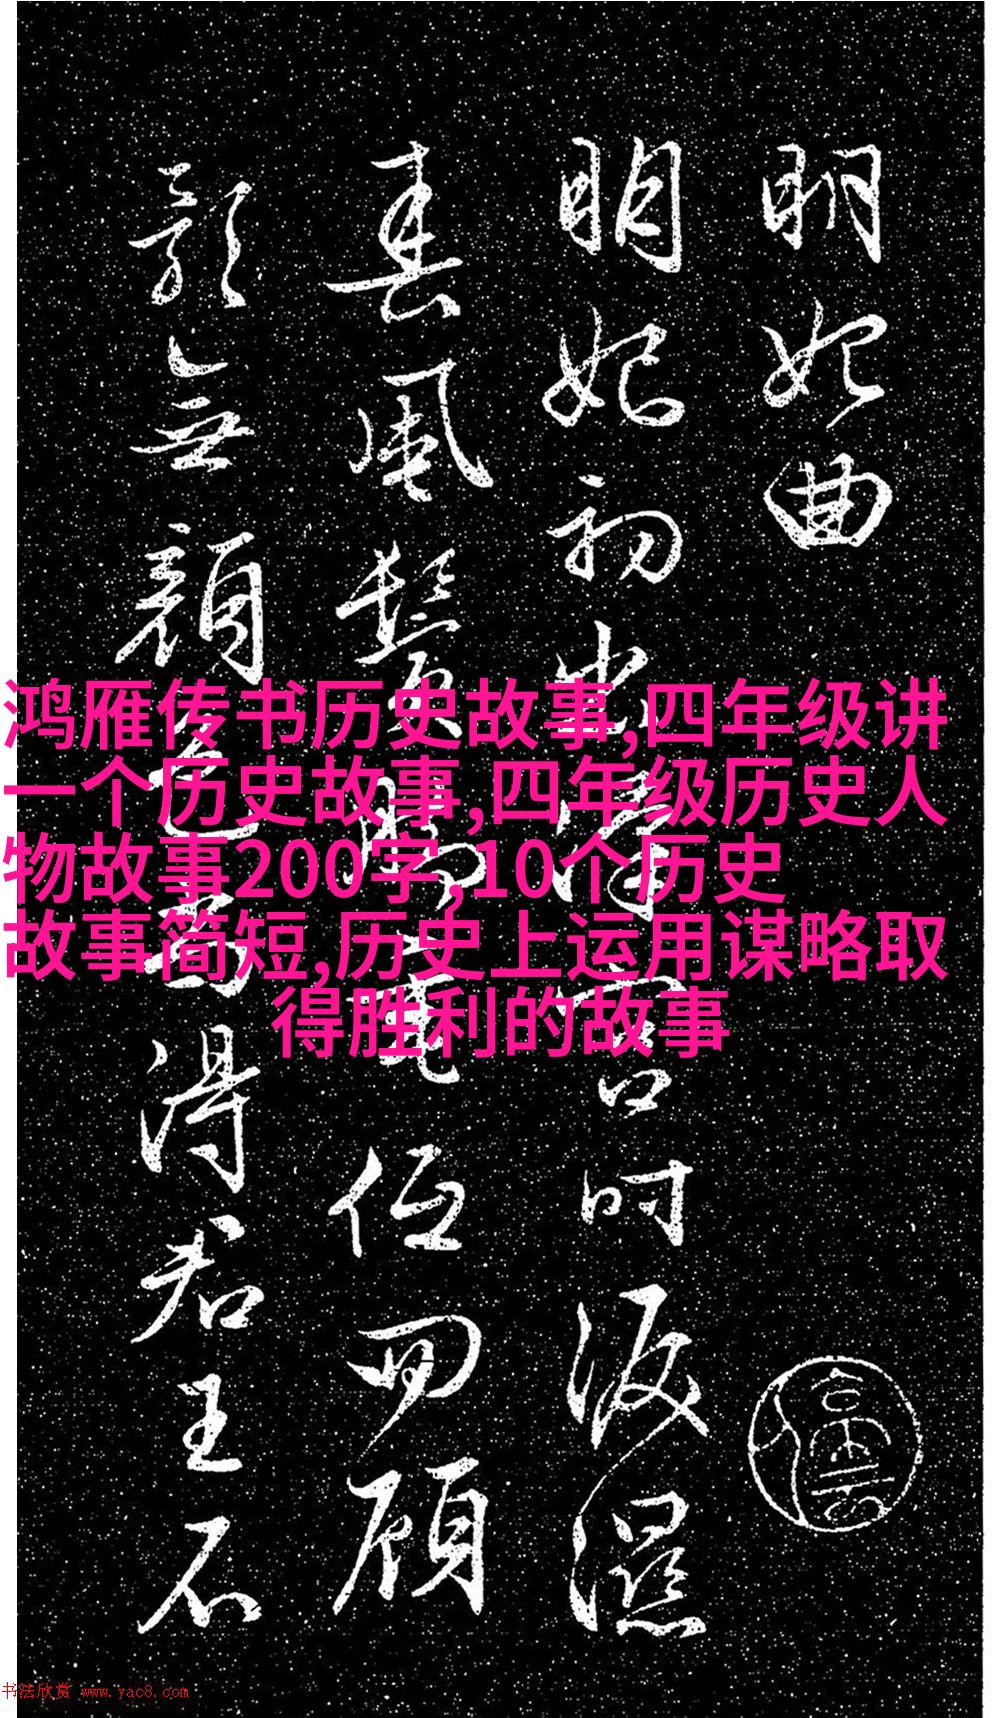 明妃曲
明妃初出漢宮時淚濕
春風鬢脚垂低回顧
影無顏色尚得君王不
鸿雁传书历史故事,四年级讲
一个历史故事,四年级历史人
物故事200字,10个历史
故事简短,历史上运用谋略取
得胜利的故事
书法欣赏 www.yac8.com